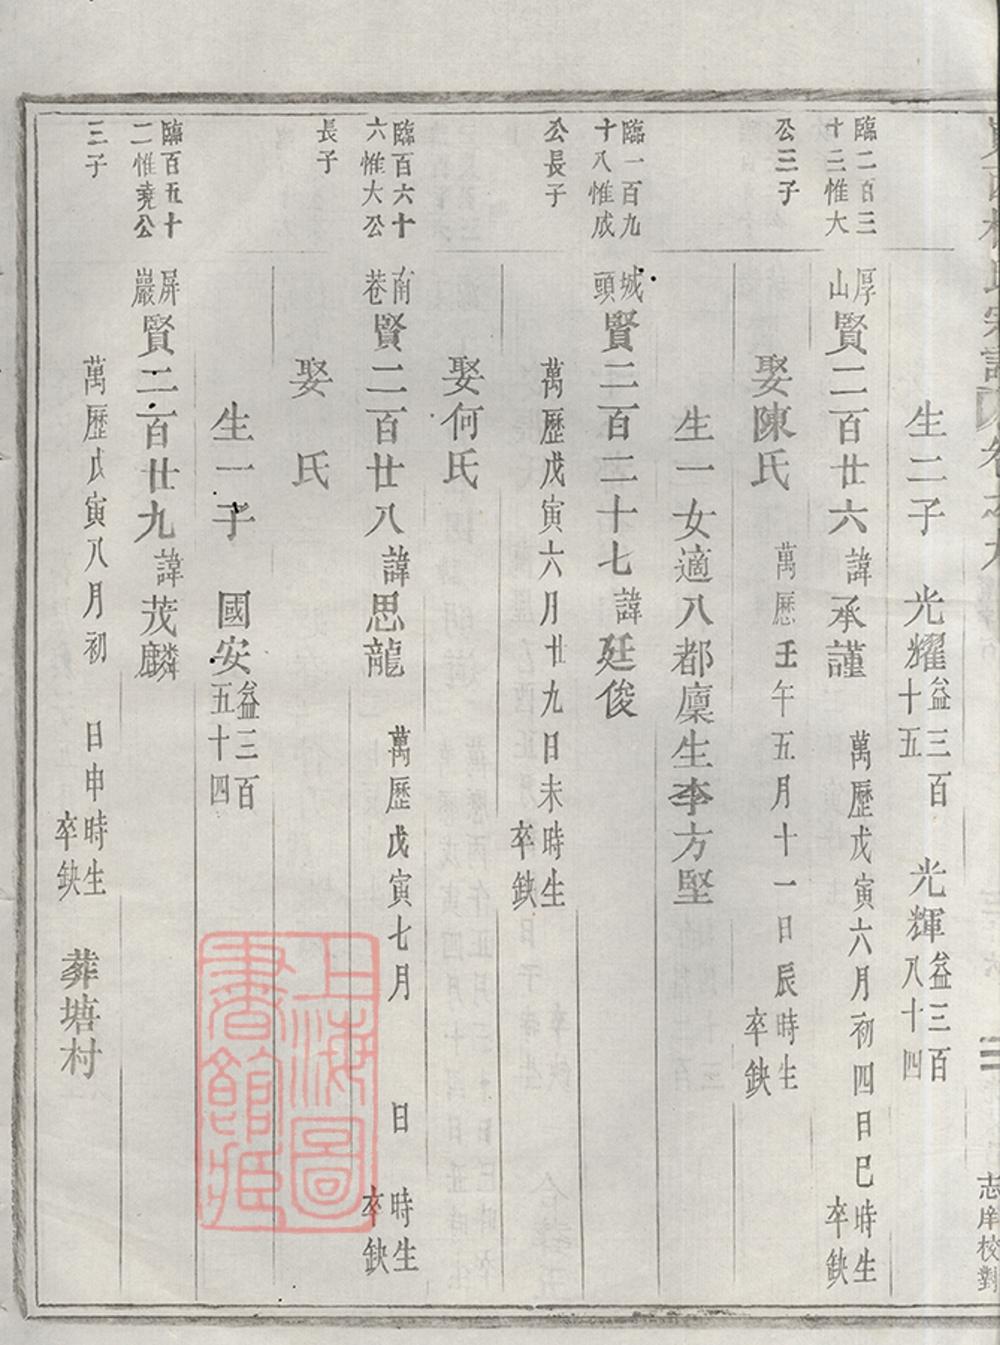 志庠校對
生二子 光耀益三百十五 光輝益三百八十四
臨二百三十三惟大公三子
厚山賢二百廿六諱承謹 萬歷戊寅六月初四日巳時生卒缺
娶陳氏 萬歷壬午五月十一日辰時生卒缺
生一女適八都廩生李方堅
臨一百九十八惟成公長子
城頭賢二百二十七諱廷俊
萬歷戊寅六月廿九日未時生卒缺
娶何氏
臨百六十六惟大公長子
南巷賢二百廿八諱思龍 萬歷戊寅七月 日 時生卒缺
娶 氏
生一子 國安益三百五十四
臨百五十二惟堯公三子
屏巖賢二百廿九諱茂麟
萬歷戊寅八月初 日申時生卒缺 葬塘村
上海圖書館藏